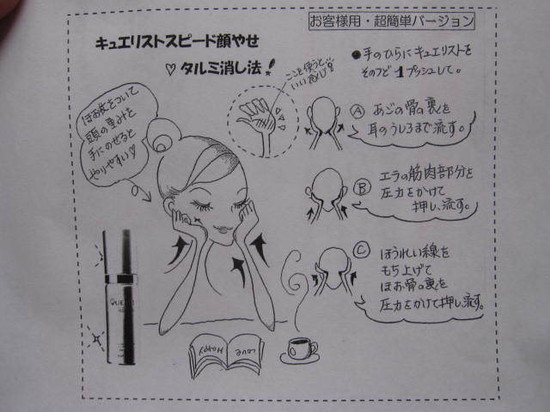 お客様用・超簡単バージョン
キュエリストスピード顔やせ
♡タルミ消し法!
ここを使うと…
いい感じ♡
●手のひらにキュエリストを
そのつど1プッシュして。
ほお杖をついて
頭の重みを
手にのせると
やりやすい♡
Ⓐ あごの骨の裏を
耳のうしろまで流す。
Ⓑ エラの筋肉部分を
圧力をかけて
押し、流す。
Ⓒ ほうれい線を
もち上げて
ほお骨の裏を
圧力をかけて押し、流す。
LOVE
Happy